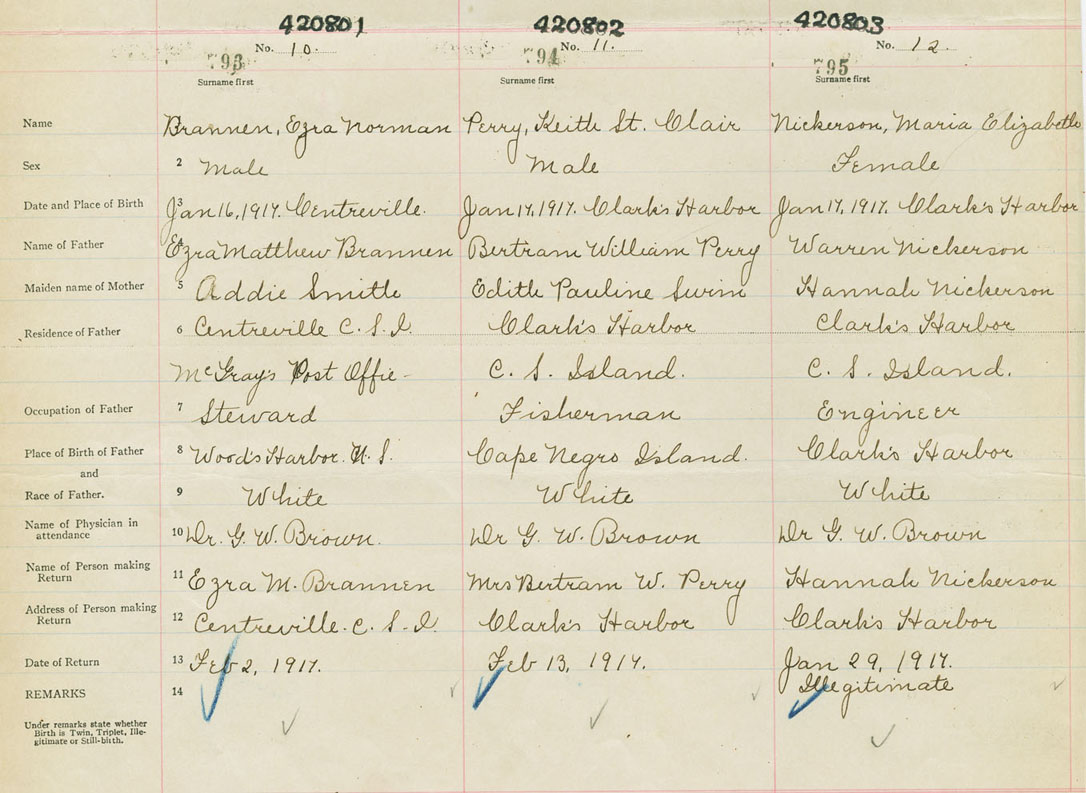 420801 420802 420803
No. 10. No. 11. No. 12.
793 794 795
Surname first Surname first Surname first
Name Brannen, Ezra Norman Perry, Keith St. Clair Nickerson, Maria Elizabeth
Sex 2 Male Male Female
Date and Place of Birth 3 Jan 16, 1917. Centreville. Jan 17, 1917. Clark's Harbor Jan 17, 1917. Clark's Harbor
Name of Father 4 Ezra Matthew Brannen Bertram William Perry Warren Nickerson
Maiden name of Mother 5 Addie Smith Edith Pauline Swim Hannah Nickerson
Residence of Father 6 Centreville C. S. I. Clark's Harbor Clark's Harbor
McGray's Post Offie- C. S. Island. C. S. Island.
Occupation of Father 7 Steward Fisherman Engineer
Place of Birth of Father 8 Wood's Harbor. N. S. Cape Negro Island. Clark's Harbor
and
Race of Father. 9 White White White
Name of Physician in
attendance 10 Dr. G. W. Brown. Dr G. W. Brown Dr G. W. Brown
Name of Person making
Return 11 Ezra M. Brannen Mrs Bertram W. Perry Hannah Nickerson
Address of Person making
Return 12 Centreville. C. S. I. Clark's Harbor Clark's Harbor
Date of Return 13 Feb 2, 1917. Feb 13, 1917. Jan 29, 1917.
REMARKS 14 Illegitimate
Under remarks state whether
Birth is Twin, Triplet, Ille-
gitimate or Still-birth.